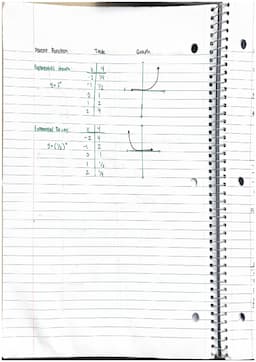 Parent Function Table Graph
Exponential Growth x y
-2 1/4
y=2ˣ -1 1/2
0 1
1 2
2 4
Exponential Decay x y
-2 4
y=(1/2)ˣ -1 2
0 1
1 1/2
2 1/4